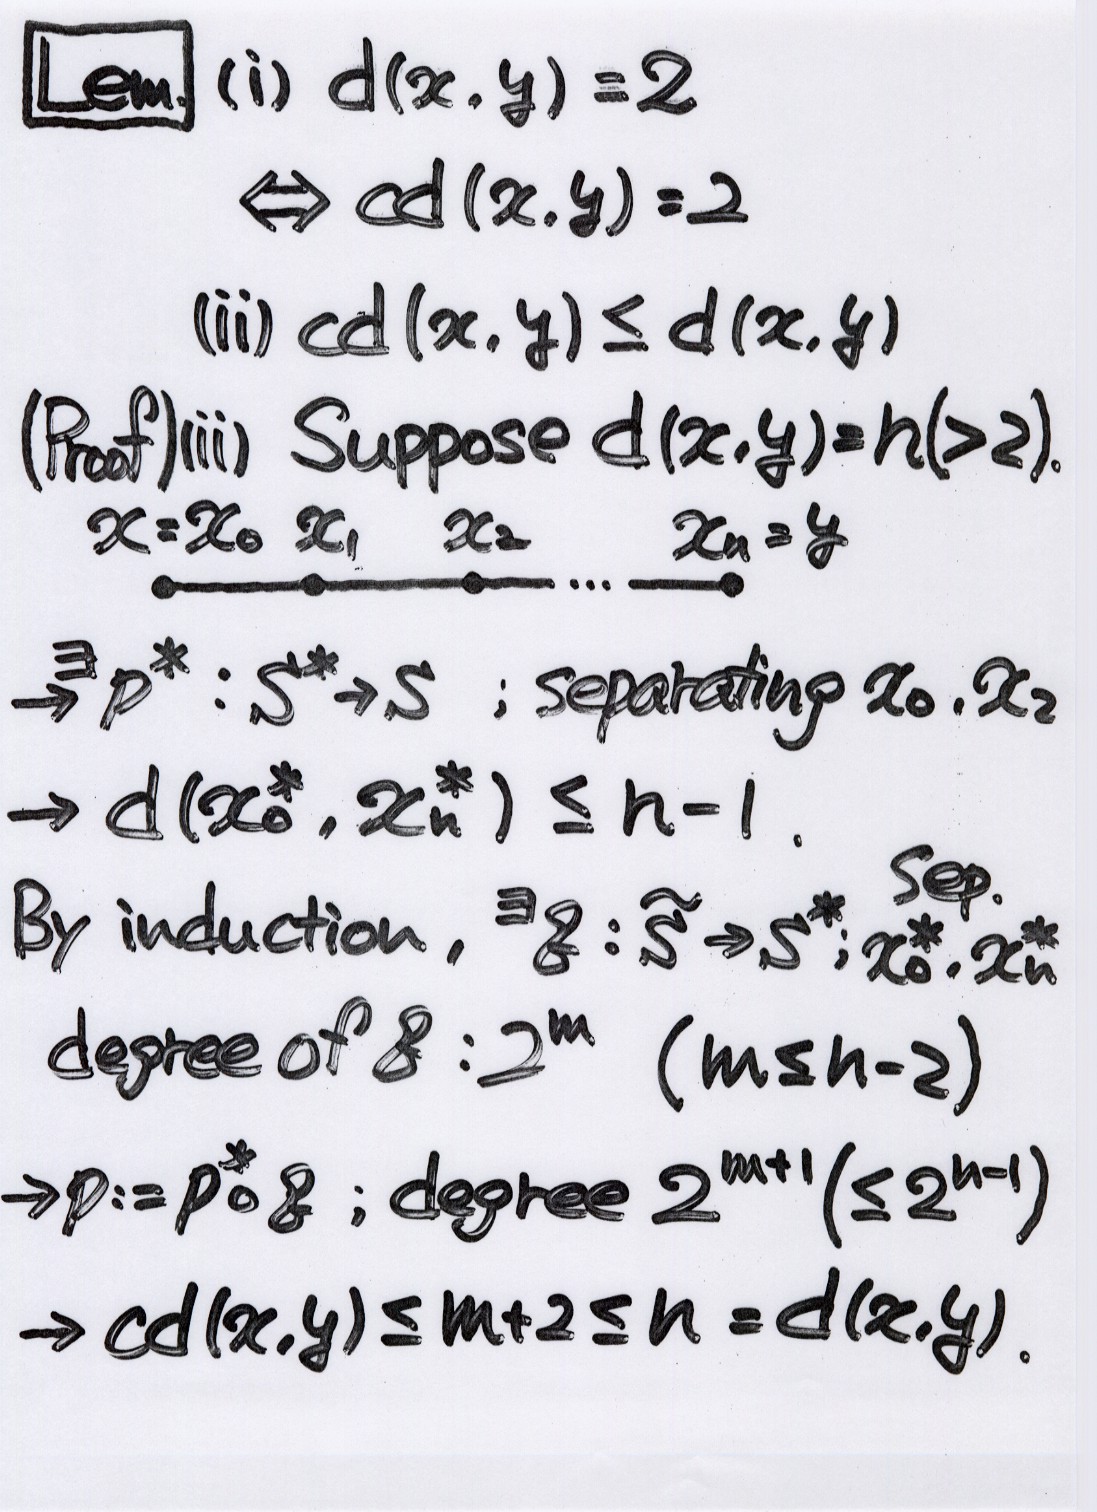 Lem. (i) d(x.y) = 2
⇔ cd(x.y) = 2
(ii) cd(x.y) ≤ d(x.y)
(Proof)(ii) Suppose d(x.y)=n(>2).
x=x₀ x₁ x₂ xₙ=y
...
→ ∃p* : S*→S ; separating x₀.x₂
→ d(x₀*, xₙ*) ≤ n-1.
By induction, ∃q : S̃→S*; sep. x₀*.xₙ*
degree of q : 2^m (m≤n-2)
→p:=p*∘q ; degree 2^{m+1}(≤2^{n-1})
→ cd(x.y)≤m+2≤n = d(x.y).